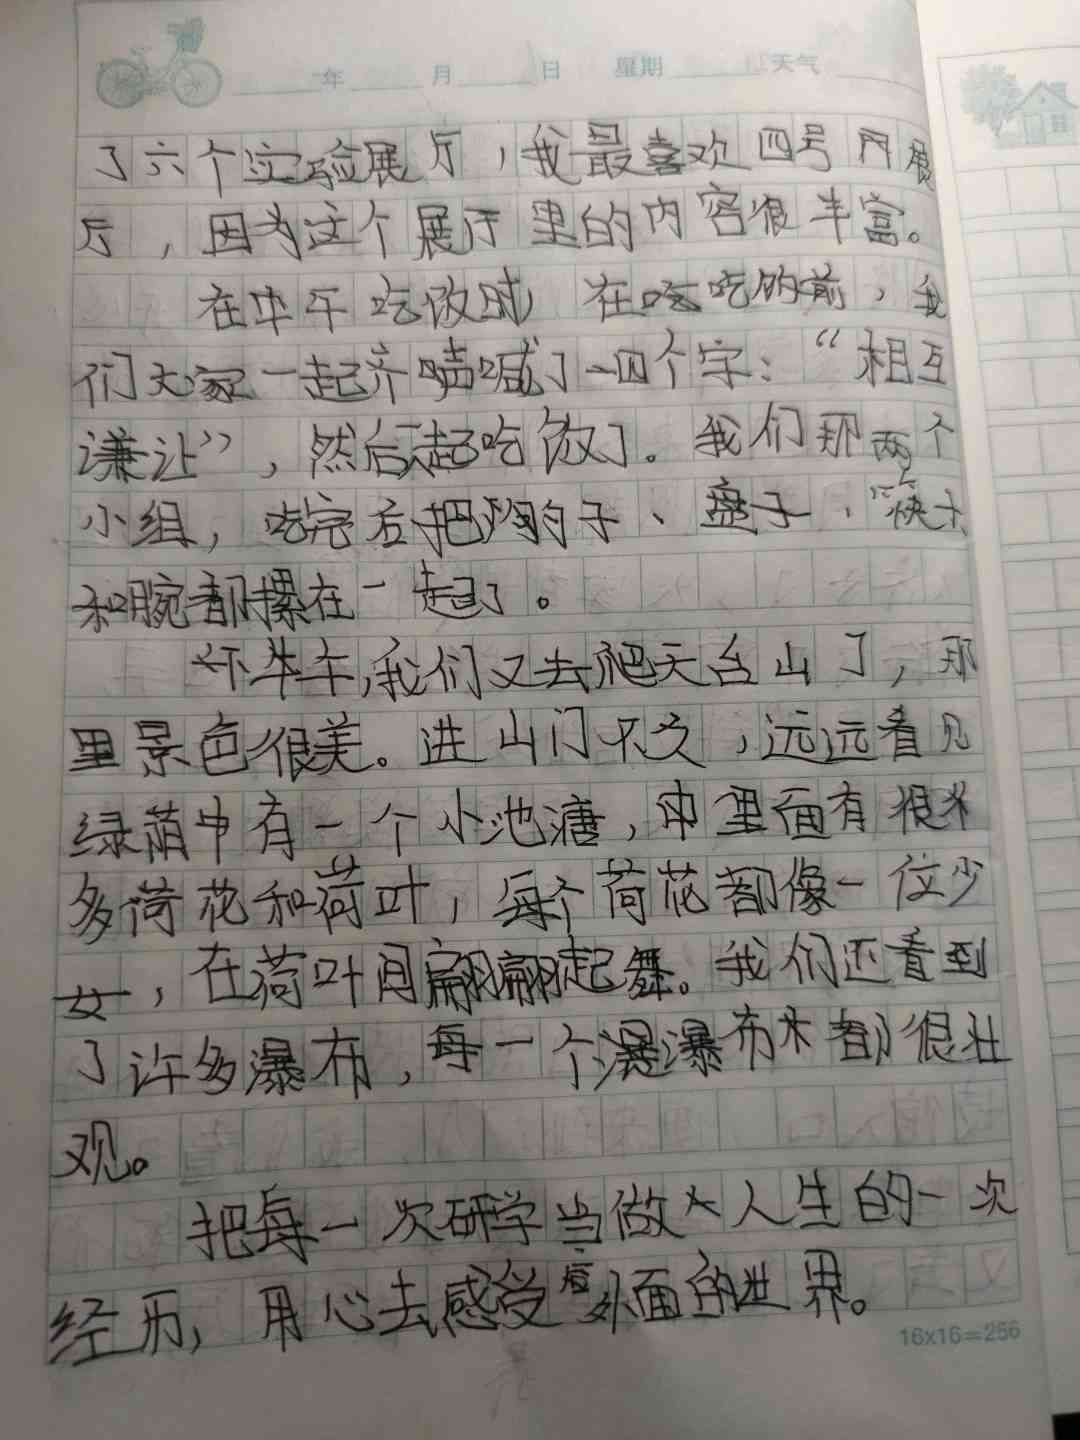 年 月 日 星期 天气
了六个实验展厅，我最喜欢四号展
厅，因为这个展厅里的内容很丰富。
在中午吃饭时 在吃饭前，我
们大家一起齐声喊了四个字：“相互
谦让”，然后一起吃饭了。我们那两个
小组，吃完后把勺子、盘子、筷子
和腕都摞在一起了。
下午，我们又去爬天台山了，那
里景色很美。进山门不久，远远看见
绿荫中有一个小池溏，里面有很
多荷花和荷叶，每个荷花都像一位少
女，在荷叶间翩翩起舞。我们还看到
了许多瀑布，每一个瀑布都很壮
观。
把每一次研学当做人生的一次
经历，用心去感受外面的世界。
16x16=256